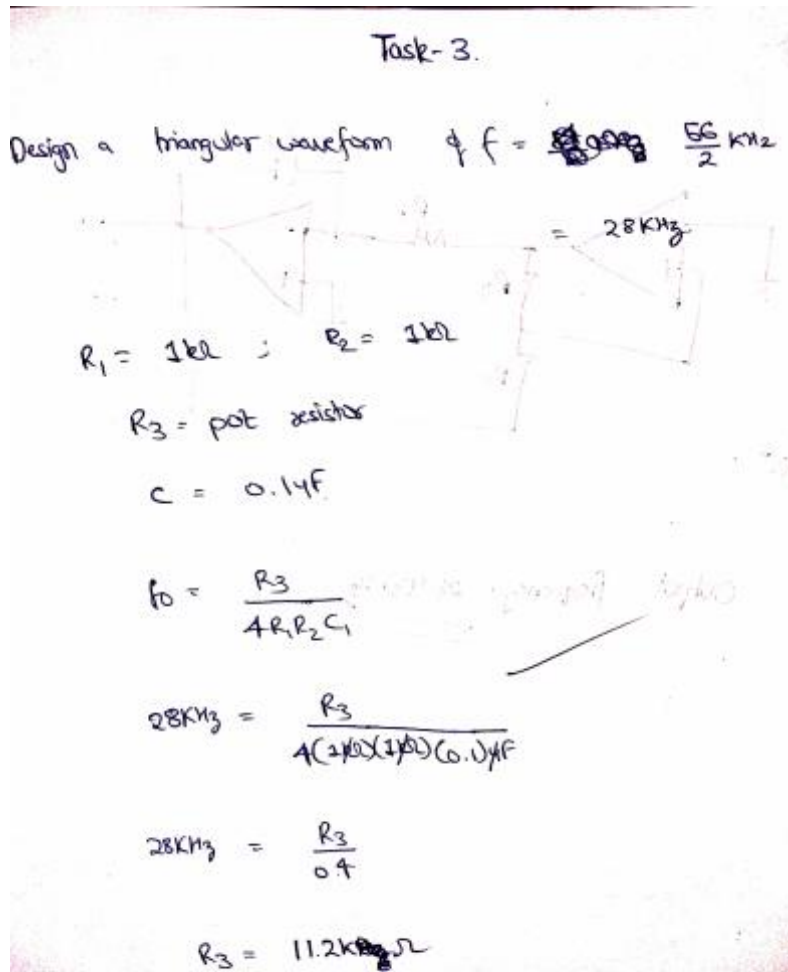 Task-3.
Design a triangular waveform of f = 56/2 KHz
= 28KHz
R₁ = 1kΩ ; R₂ = 1kΩ
R₃ = pot resistor
C = 0.1μF
f₀ = R₃ / 4R₁R₂C₁
28KHz = R₃ / 4(1kΩ)(1kΩ)(0.1)μF
28KHz = R₃ / 0.4
R₃ = 11.2K Ω